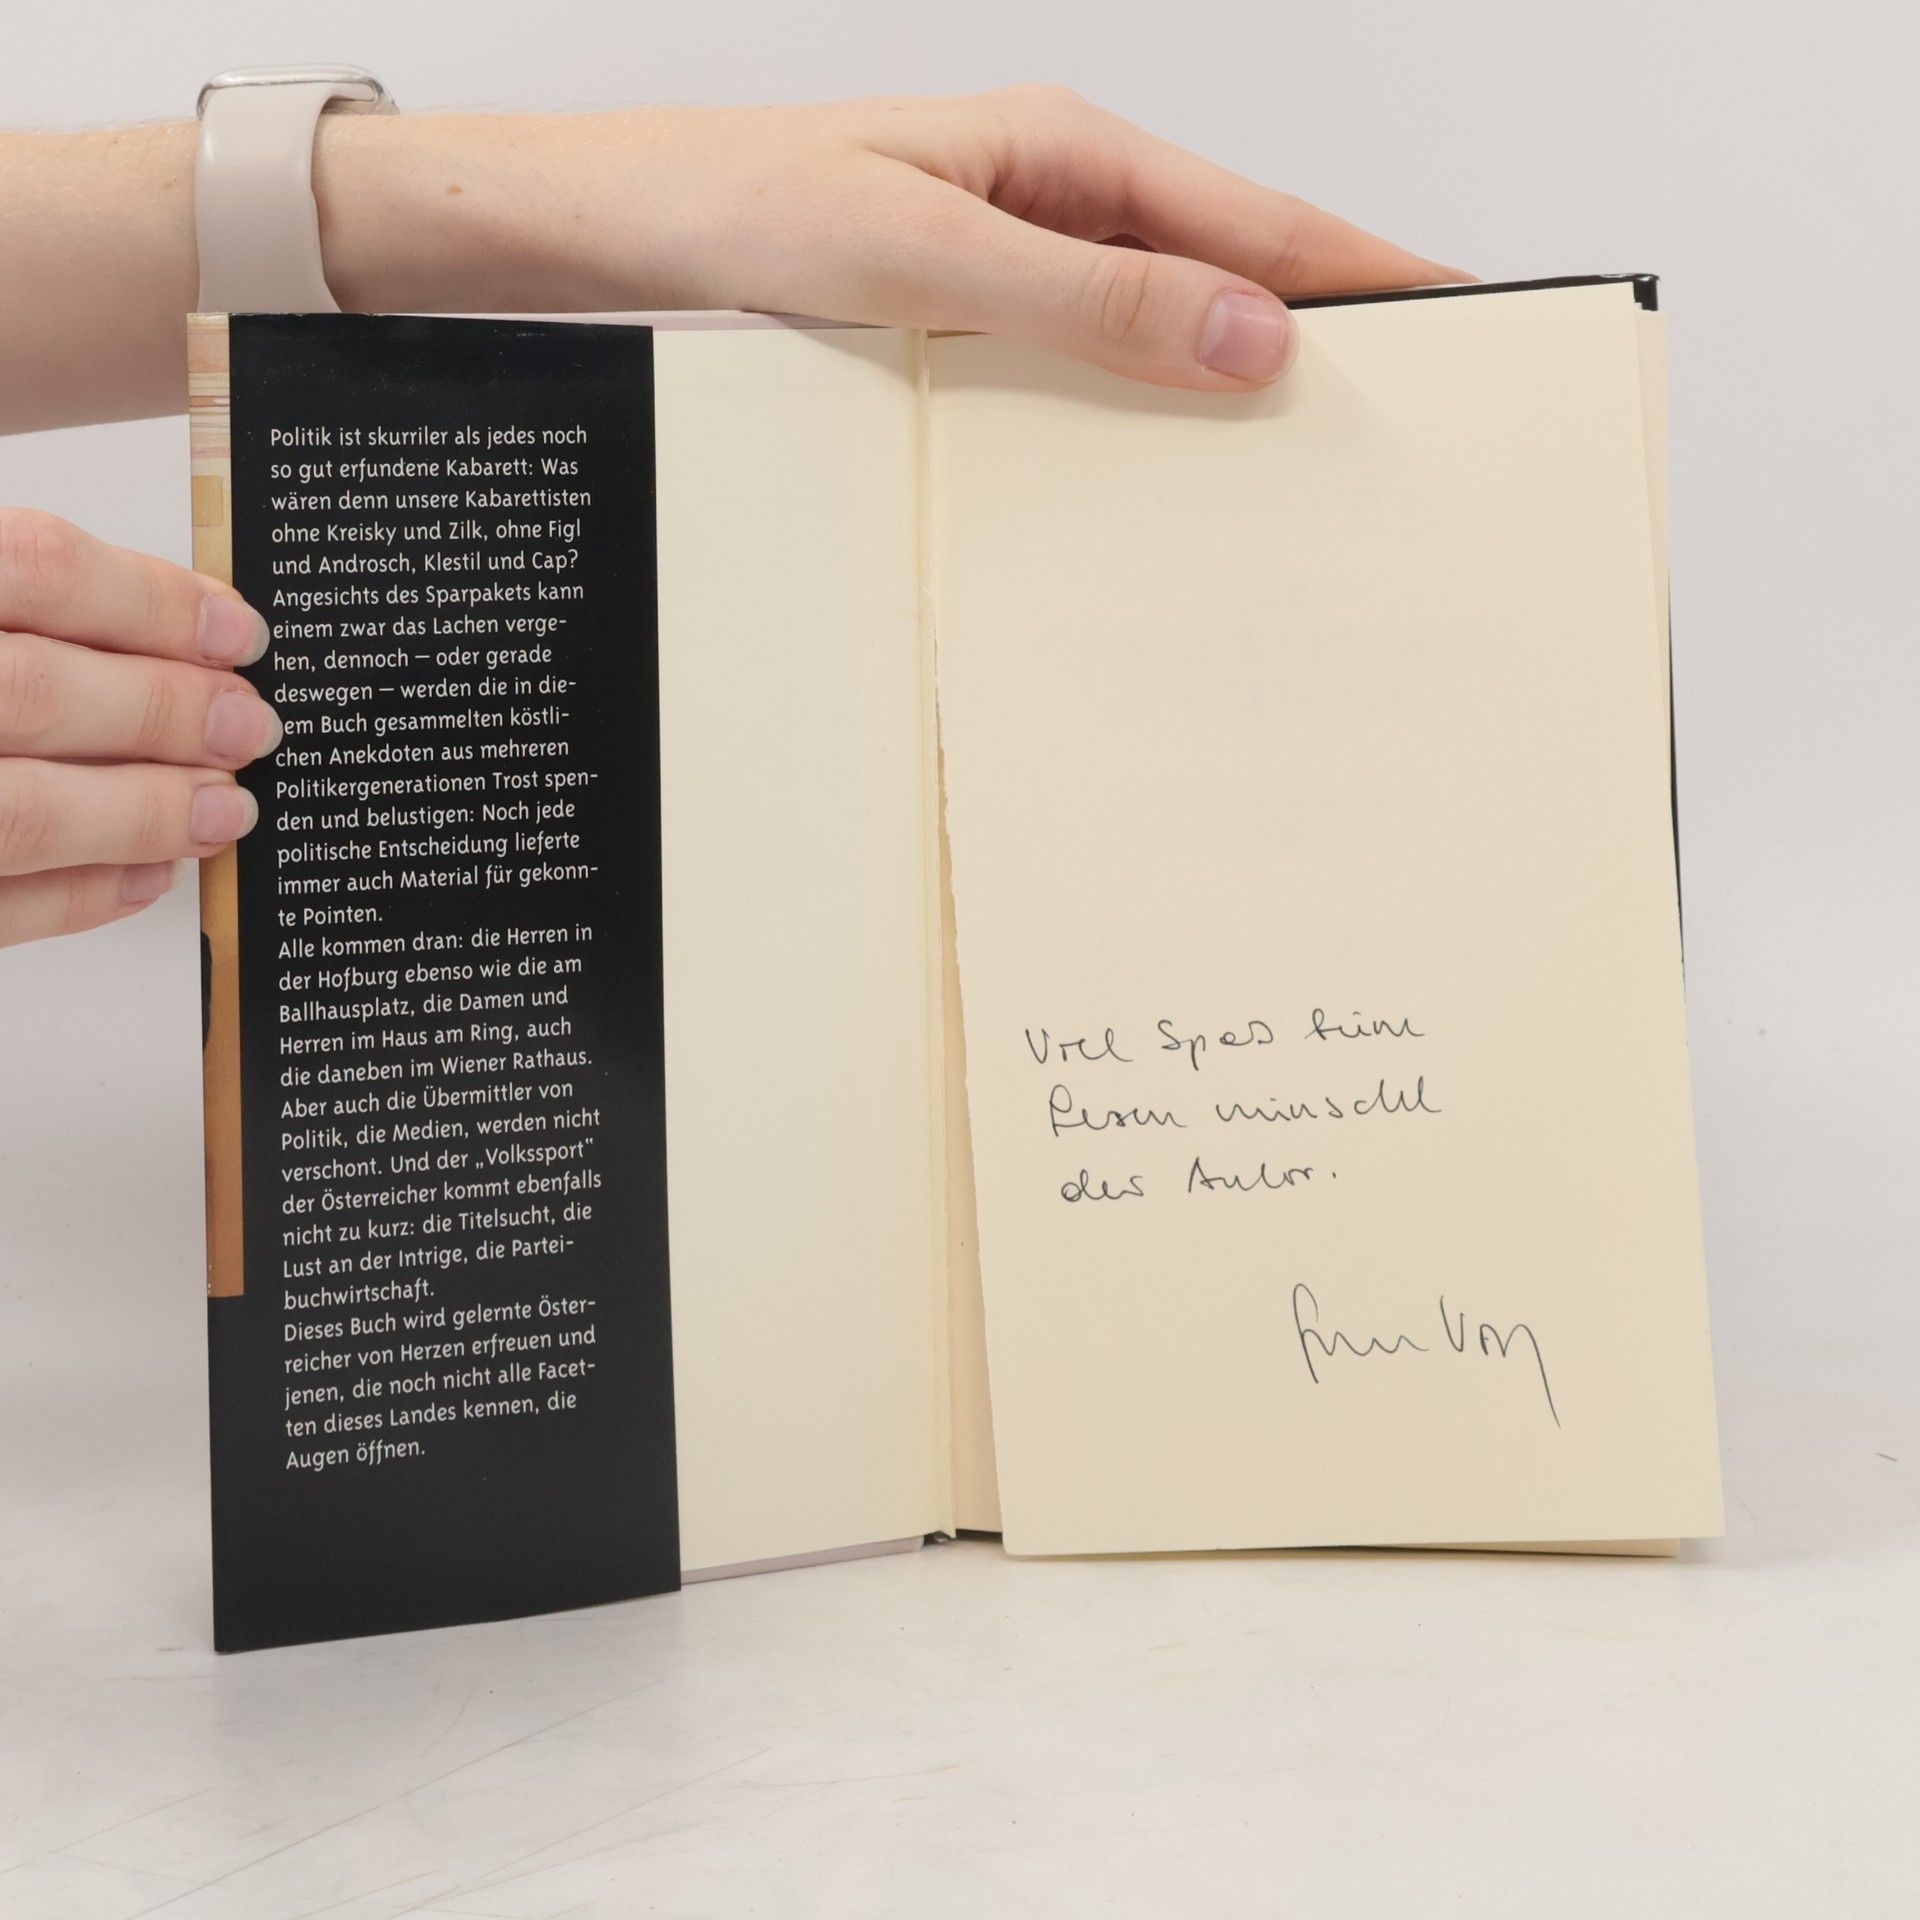 Politik ist skurriler als jedes noch
so gut erfundene Kabarett: Was
wären denn unsere Kabarettisten
ohne Kreisky und Zilk, ohne Figl
und Androsch, Klestil und Cap?
Angesichts des Sparpakets kann
einem zwar das Lachen verge-
hen, dennoch – oder gerade
deswegen – werden die in die-
em Buch gesammelten köstli-
chen Anekdoten aus mehreren
Politikergenerationen Trost spen-
den und belustigen: Noch jede
politische Entscheidung lieferte
immer auch Material für gekonn-
te Pointen.
Alle kommen dran: die Herren in
der Hofburg ebenso wie die am
Ballhausplatz, die Damen und
Herren im Haus am Ring, auch
die daneben im Wiener Rathaus.
Aber auch die Übermittler von
Politik, die Medien, werden nicht
verschont. Und der „Volkssport“
der Österreicher kommt ebenfalls
nicht zu kurz: die Titelsucht, die
Lust an der Intrige, die Partei-
buchwirtschaft.
Dieses Buch wird gelernte Öster-
reicher von Herzen erfreuen und
jenen, die noch nicht alle Facet-
ten dieses Landes kennen, die
Augen öffnen.
Viel Spaß beim
Lesen wünscht
der Autor.